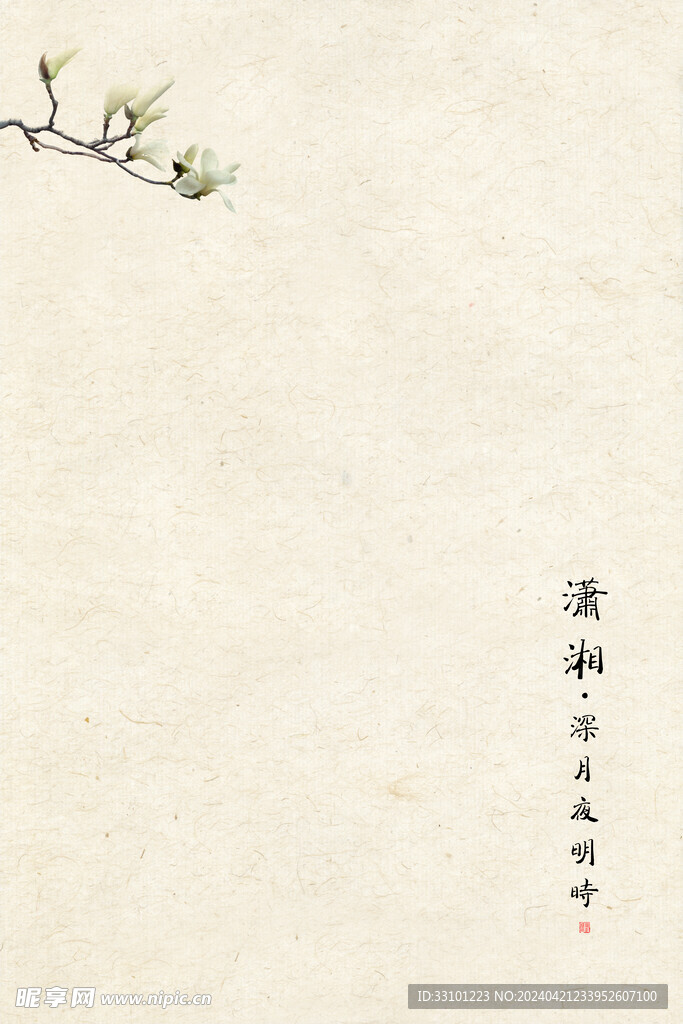 瀟湘·深月夜明時
昵享网 www.nipic.cn
ID:33101223 NO:20240421233952607100